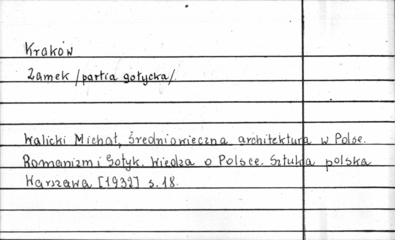 Kraków
Zamek /partia gotycka/.
Walicki Michał, Średniowieczna architektura w Polsce.
Romanizm i Gotyk. Wiedza o Polsce. Sztuka polska
Warszawa [1932] s. 18.